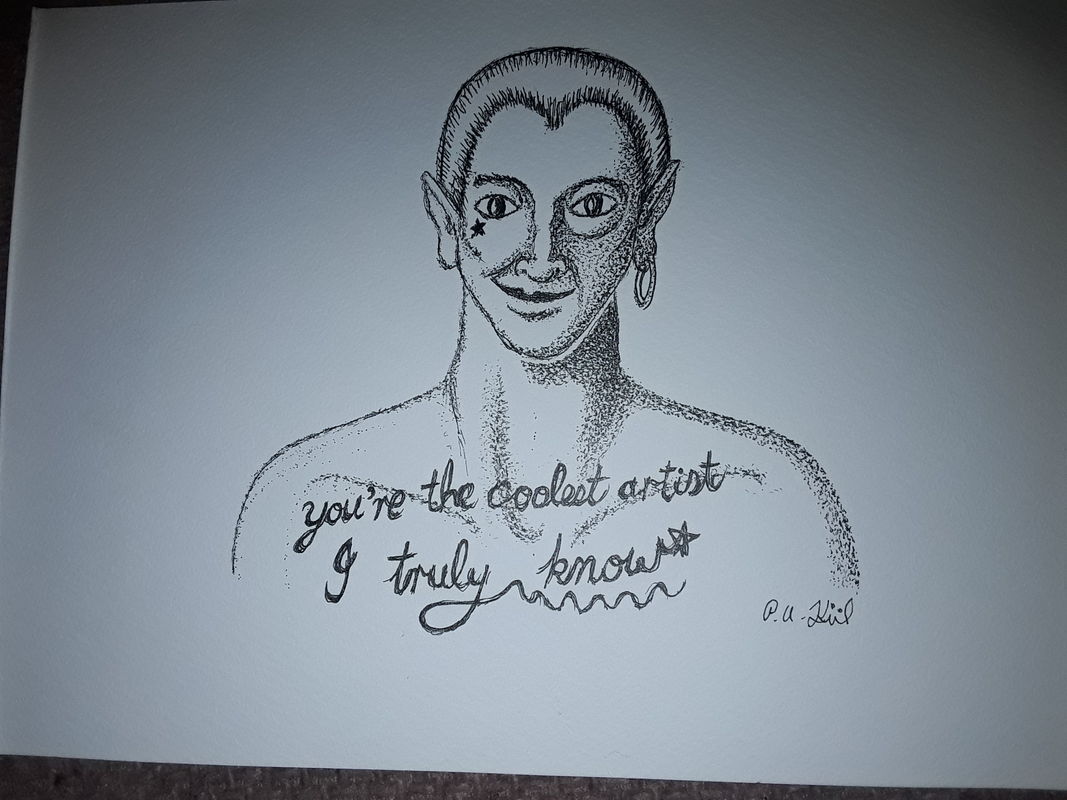 you're the coolest artist
I truly know
P.A.-Kiil